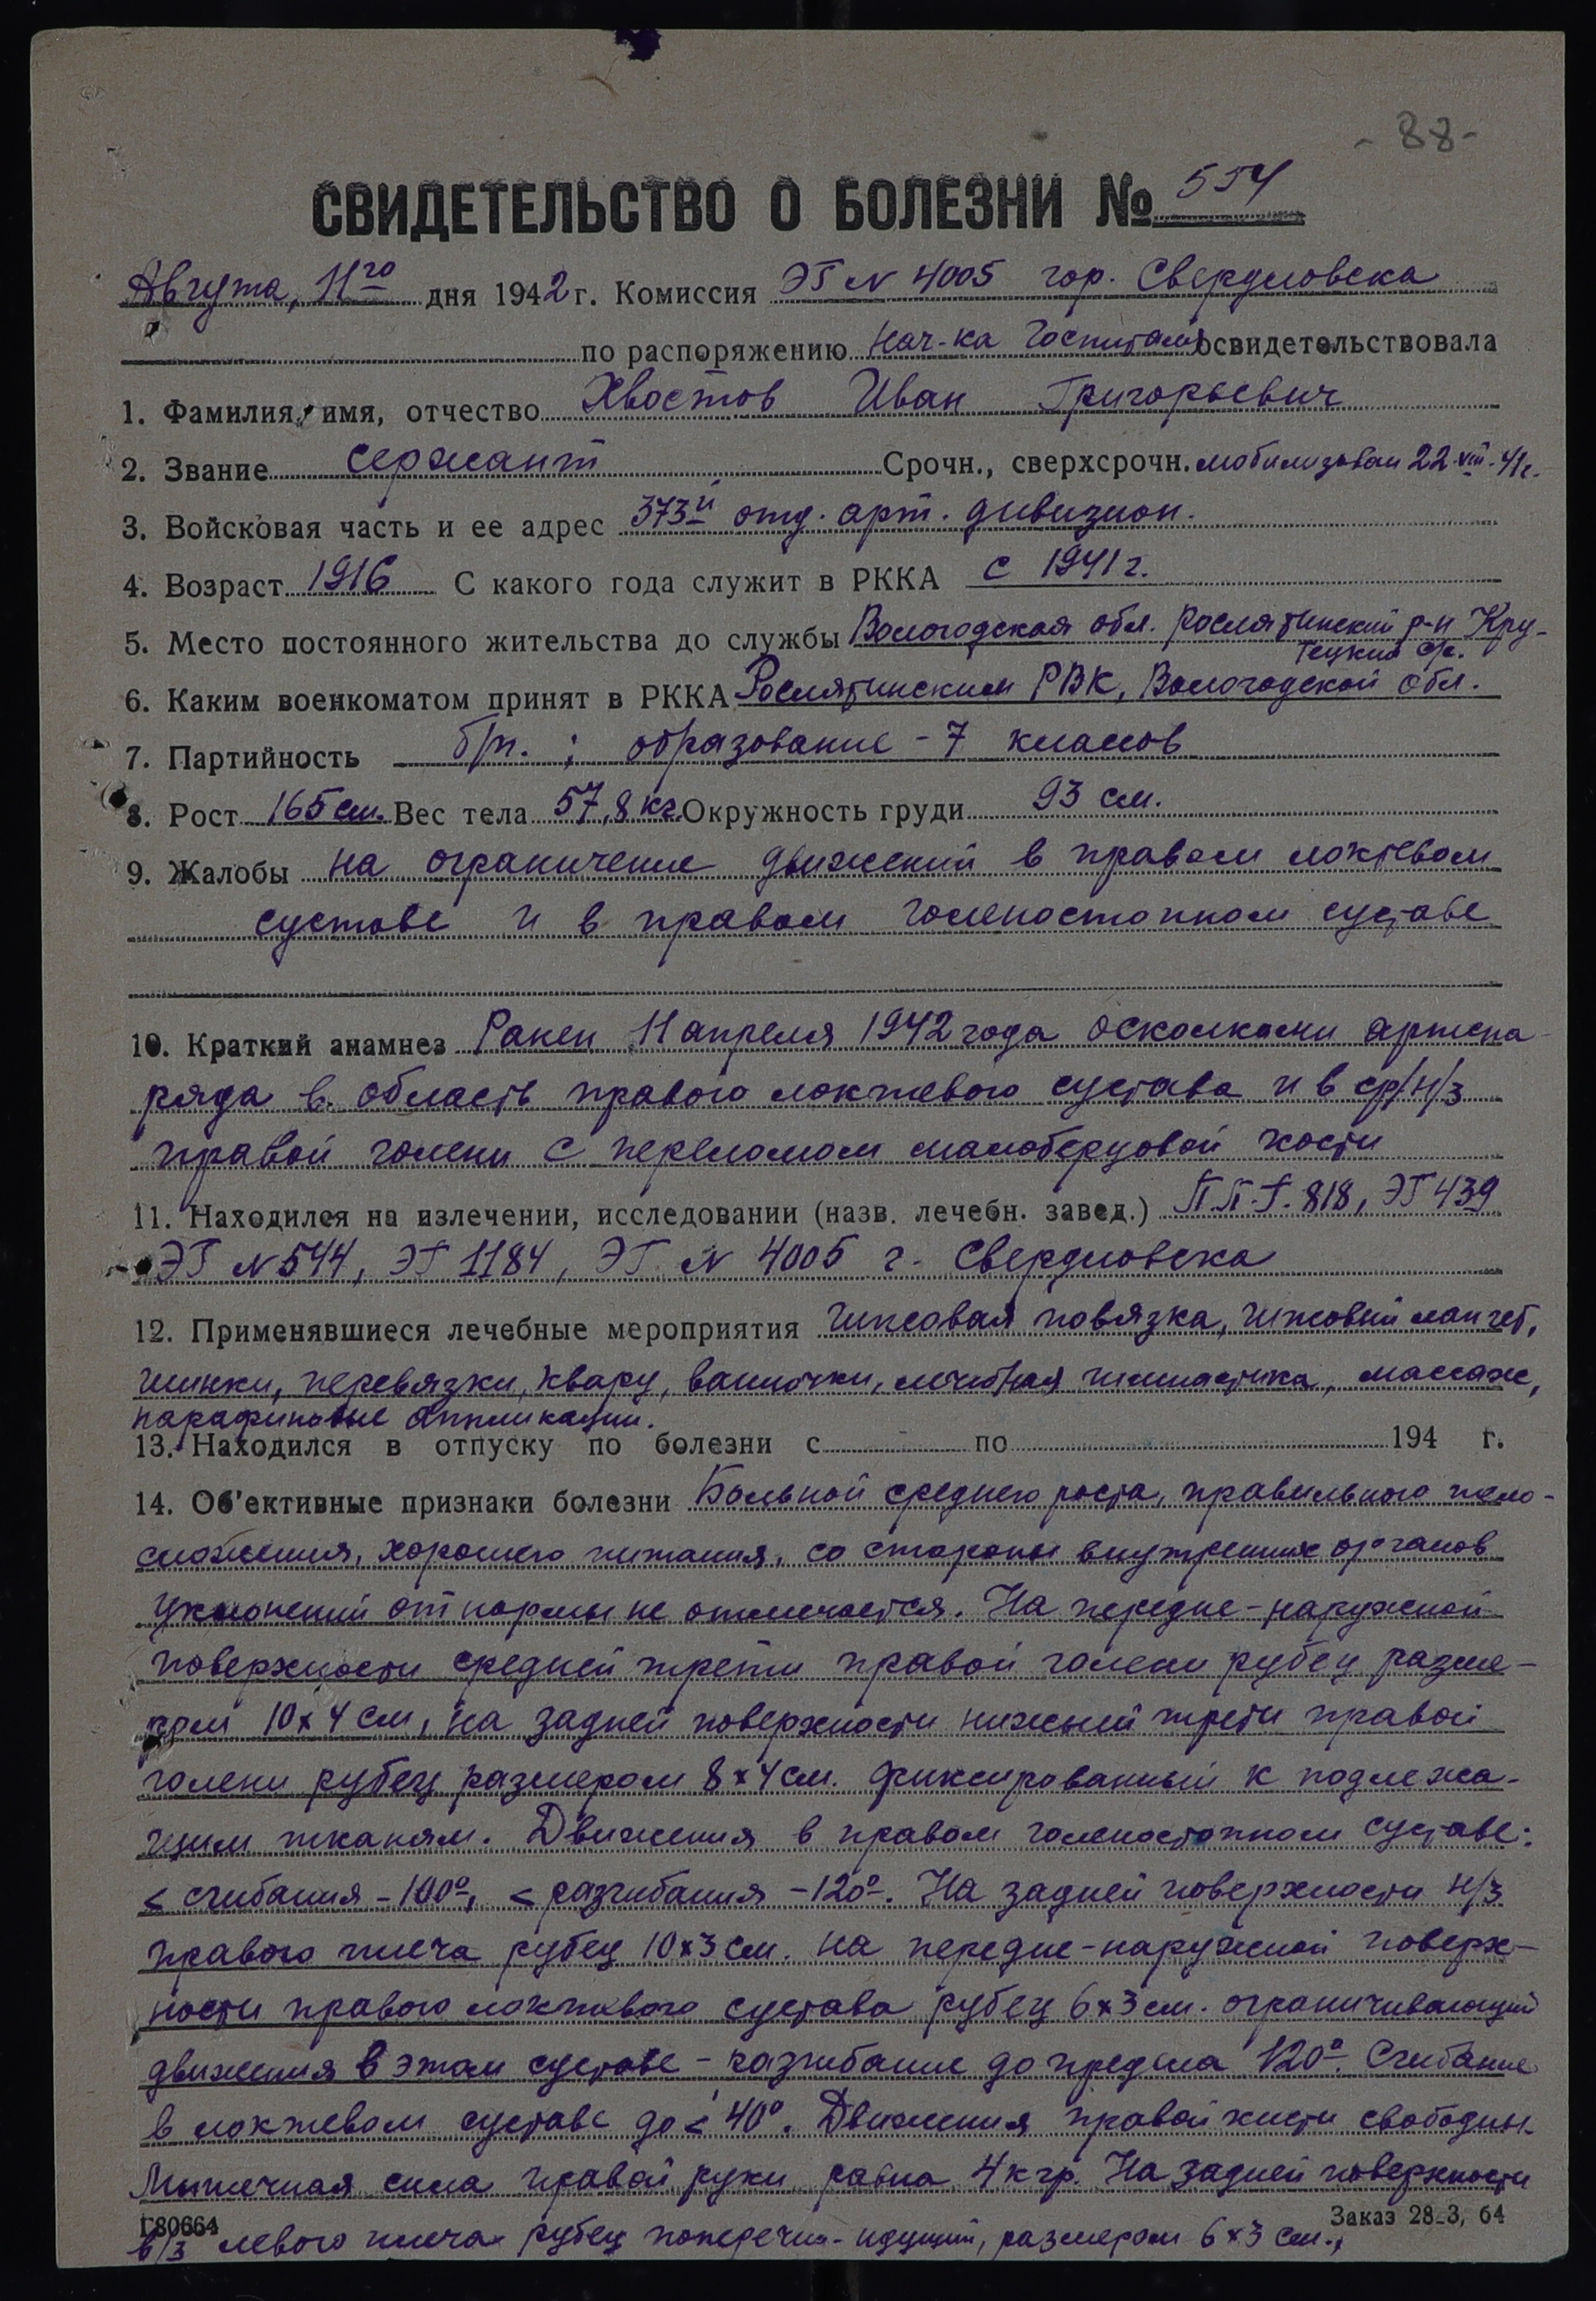 - 88 -
СВИДЕТЕЛЬСТВО О БОЛЕЗНИ № 554
Августа, 11го дня 1942 г. Комиссия ЭГ N 4005 гор. Свердловска
по распоряжению нач-ка Госпиталя освидетельствовала
1. Фамилия, имя, отчество Хвостов Иван Григорьевич
2. Звание сержант Срочн., сверхсрочн. мобилизован 22.VIII.41г.
3. Войсковая часть и ее адрес 373й отд. арт. дивизион.
4. Возраст 1916 С какого года служит в РККА с 1941 г.
5. Место постоянного жительства до службы Вологодская обл. Рослятинский р-н Кру-
тецкий с/с.
6. Каким военкоматом принят в РККА Рослятинским РВК, Вологодской обл.
7. Партийность б/п. ; образование - 7 классов
8. Рост 165 см. Вес тела 57,8 кг. Окружность груди 93 см.
9. Жалобы на ограничение движений в правом локтевом
суставе и в правом голеностопном суставе
10. Краткий анамнез Ранен 11 апреля 1942 года осколками артсна-
ряда в область правого локтевого сустава и в ср/н/з
правой голени с переломом малоберцовой кости
11. Находился на излечении, исследовании (назв. лечебн. завед.) П.П.Г. 818, ЭГ 439
ЭГ N 544, ЭГ 1184, ЭГ N 4005 г. Свердловска
12. Применявшиеся лечебные мероприятия гипсовая повязка, гипсовый манжет,
шинки, перевязки, кварц, ванночки, лечебная гимнастика, массаж,
парафиновые аппликации.
13. Находился в отпуску по болезни с по 194 г.
14. Об'ективные признаки болезни Больной среднего роста, правильного тело-
сложения, хорошего питания, со стороны внутренних органов
уклонений от нормы не отмечается. На передне-наружной
поверхности средней трети правой голени рубец разме-
ром 10х4 см, на задней поверхности нижней трети правой
голени рубец размером 8х4 см. фиксированный к подлежа-
щим тканям. Движения в правом голеностопном суставе:
< сгибания - 100°, < разгибания - 120°. На задней поверхности н/з
правого плеча рубец 10х3 см. на передне-наружной поверх-
ности правого локтевого сустава рубец 6х3 см. ограничивающий
движения в этом суставе - разгибание до предела 120°. Сгибание
в локтевом суставе до < 40°. Движения правой кисти свободны.
Мышечная сила правой руки равна 4 кгр. На задней поверхности
Г80664 Заказ 28-3, 64
в/з левого плеча рубец поперечно-идущий, размером 6х3 см.,